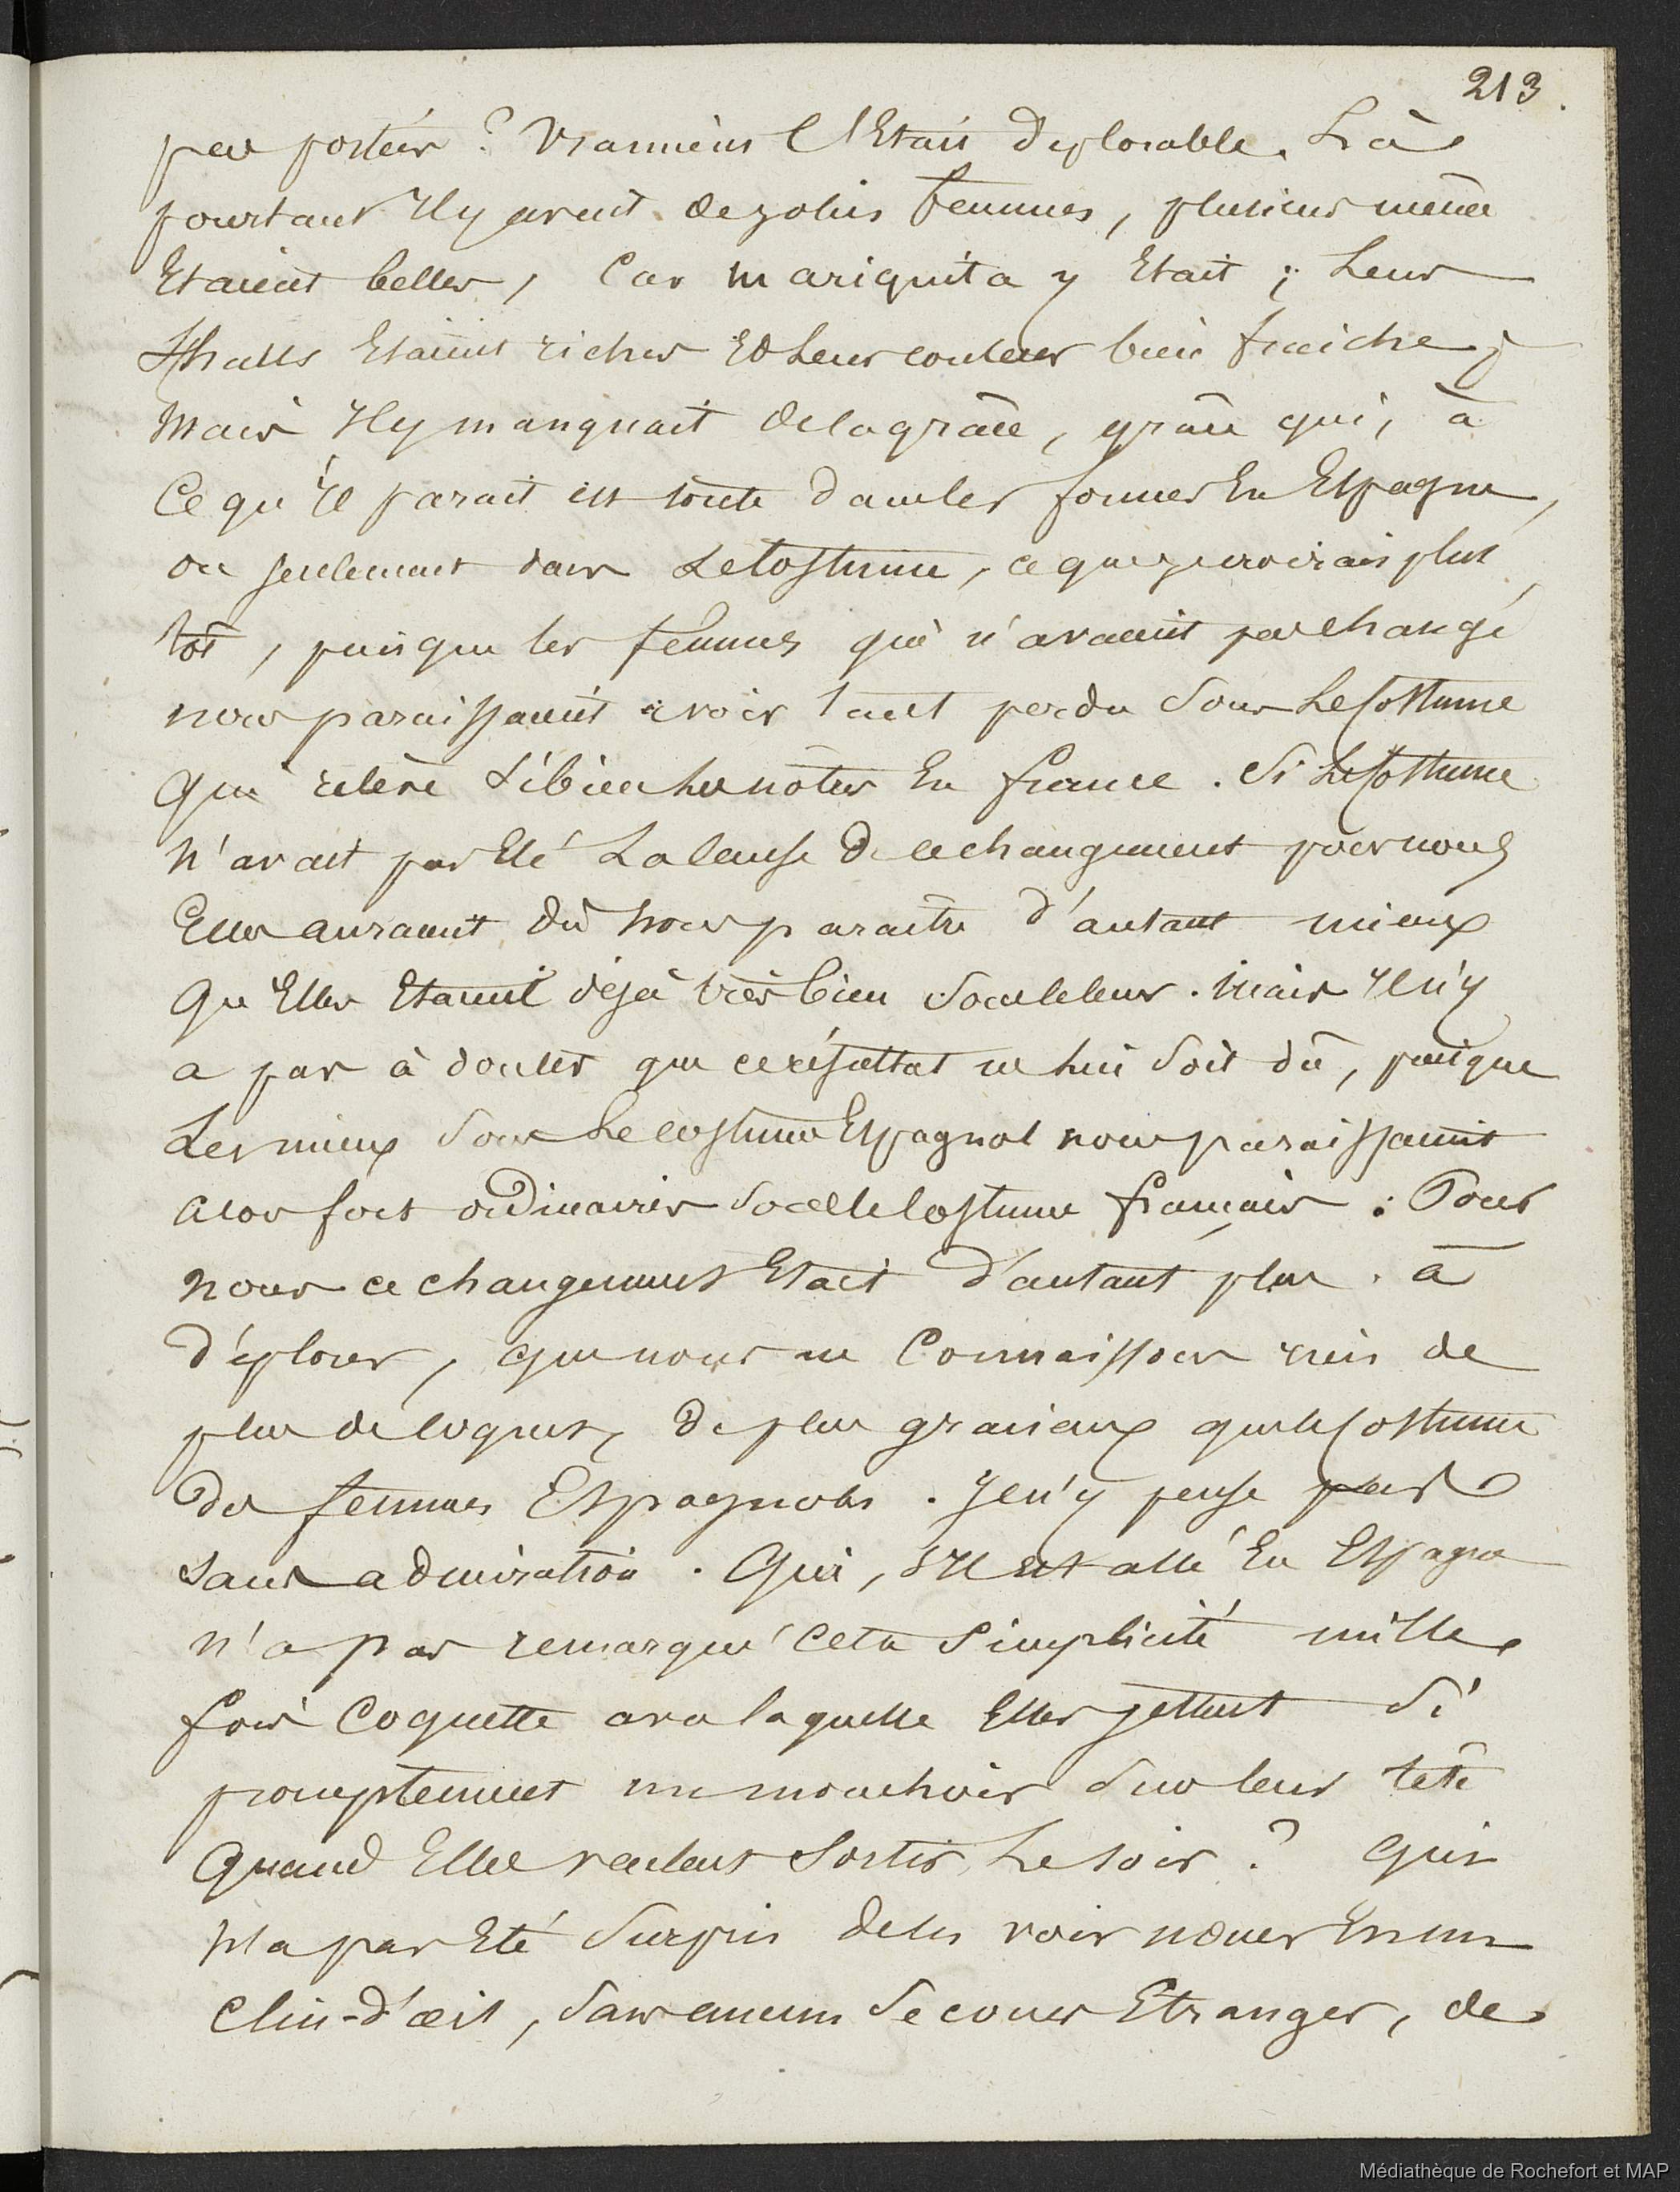 213.
peu portées ? Vraiment C'Etait déplorable. Là
pourtant Il y avait de jolies femmes, plusieurs même
Etaient belles, Car Mariquita y Etait ; Leurs
Schalls Etaient riches Et Leur couleur bien fraiche ;
Mais Il y manquait de la grâce, grâce qui, à
Ce qu'Il parait est toute dans les formes En Espagne,
ou seulement dans Le Costume, ce que je croirais plus
tôt, puisque les femmes qui n'avaient pas changé
nous paraissaient avoir tant perdu Sous Le Costume
Qui relève Si bien Les notres En france. Si Le Costume
N'avait pas Eté La Cause de ce changement pour nous
Elles auraient dû nous paraitre d'autant mieux
Qu'Elles Etaient déjà très bien Sous le leur. Mais Il n'y
a pas à douter que ce résultat ne lui Soit dû, puisque
Les mieux Sous Le costume Espagnol nous paraissaient
alors fort ordinaires Sous le Costume français : Pour
nous ce changement Etait d'autant plus à
déplorer, que nous ne Connaissons rien de
plus de coquet, de plus gracieux que le Costume
des femmes Espagnoles. Je n'y pense pas
sans admiration. Qui, s'Il est allé En Espagne
n'a pas remarqué Cette Simplicité mille
fois Coquette avec laquelle Elles jettent Si
promptement un mouchoir Sur leur tête
Quand Elles veulent Sortir Le soir ? Qui
N'a pas Eté Surpris de les voir nouer En un
Clin-d'œil, Sans aucun Secours Etranger, de
Médiathèque de Rochefort et MAP